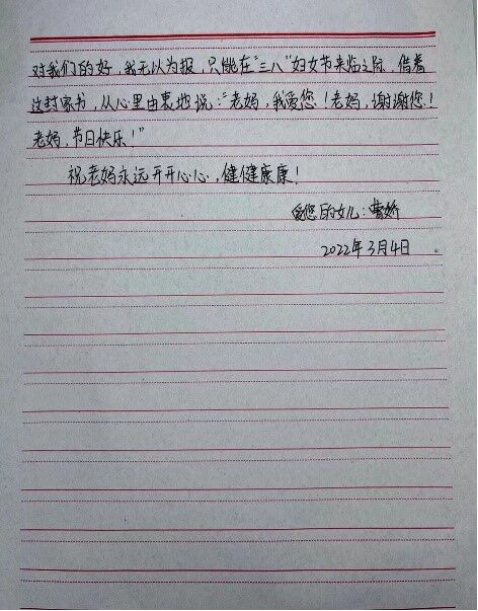 对我们的好，我无以为报，只能在“三八”妇女节来临之际，借着
这封家书，从心里由衷地说：“老妈，我爱您！老妈，谢谢您！
老妈，节日快乐！”
祝老妈永远开开心心，健健康康！
爱您的女儿：
2022年3月4日